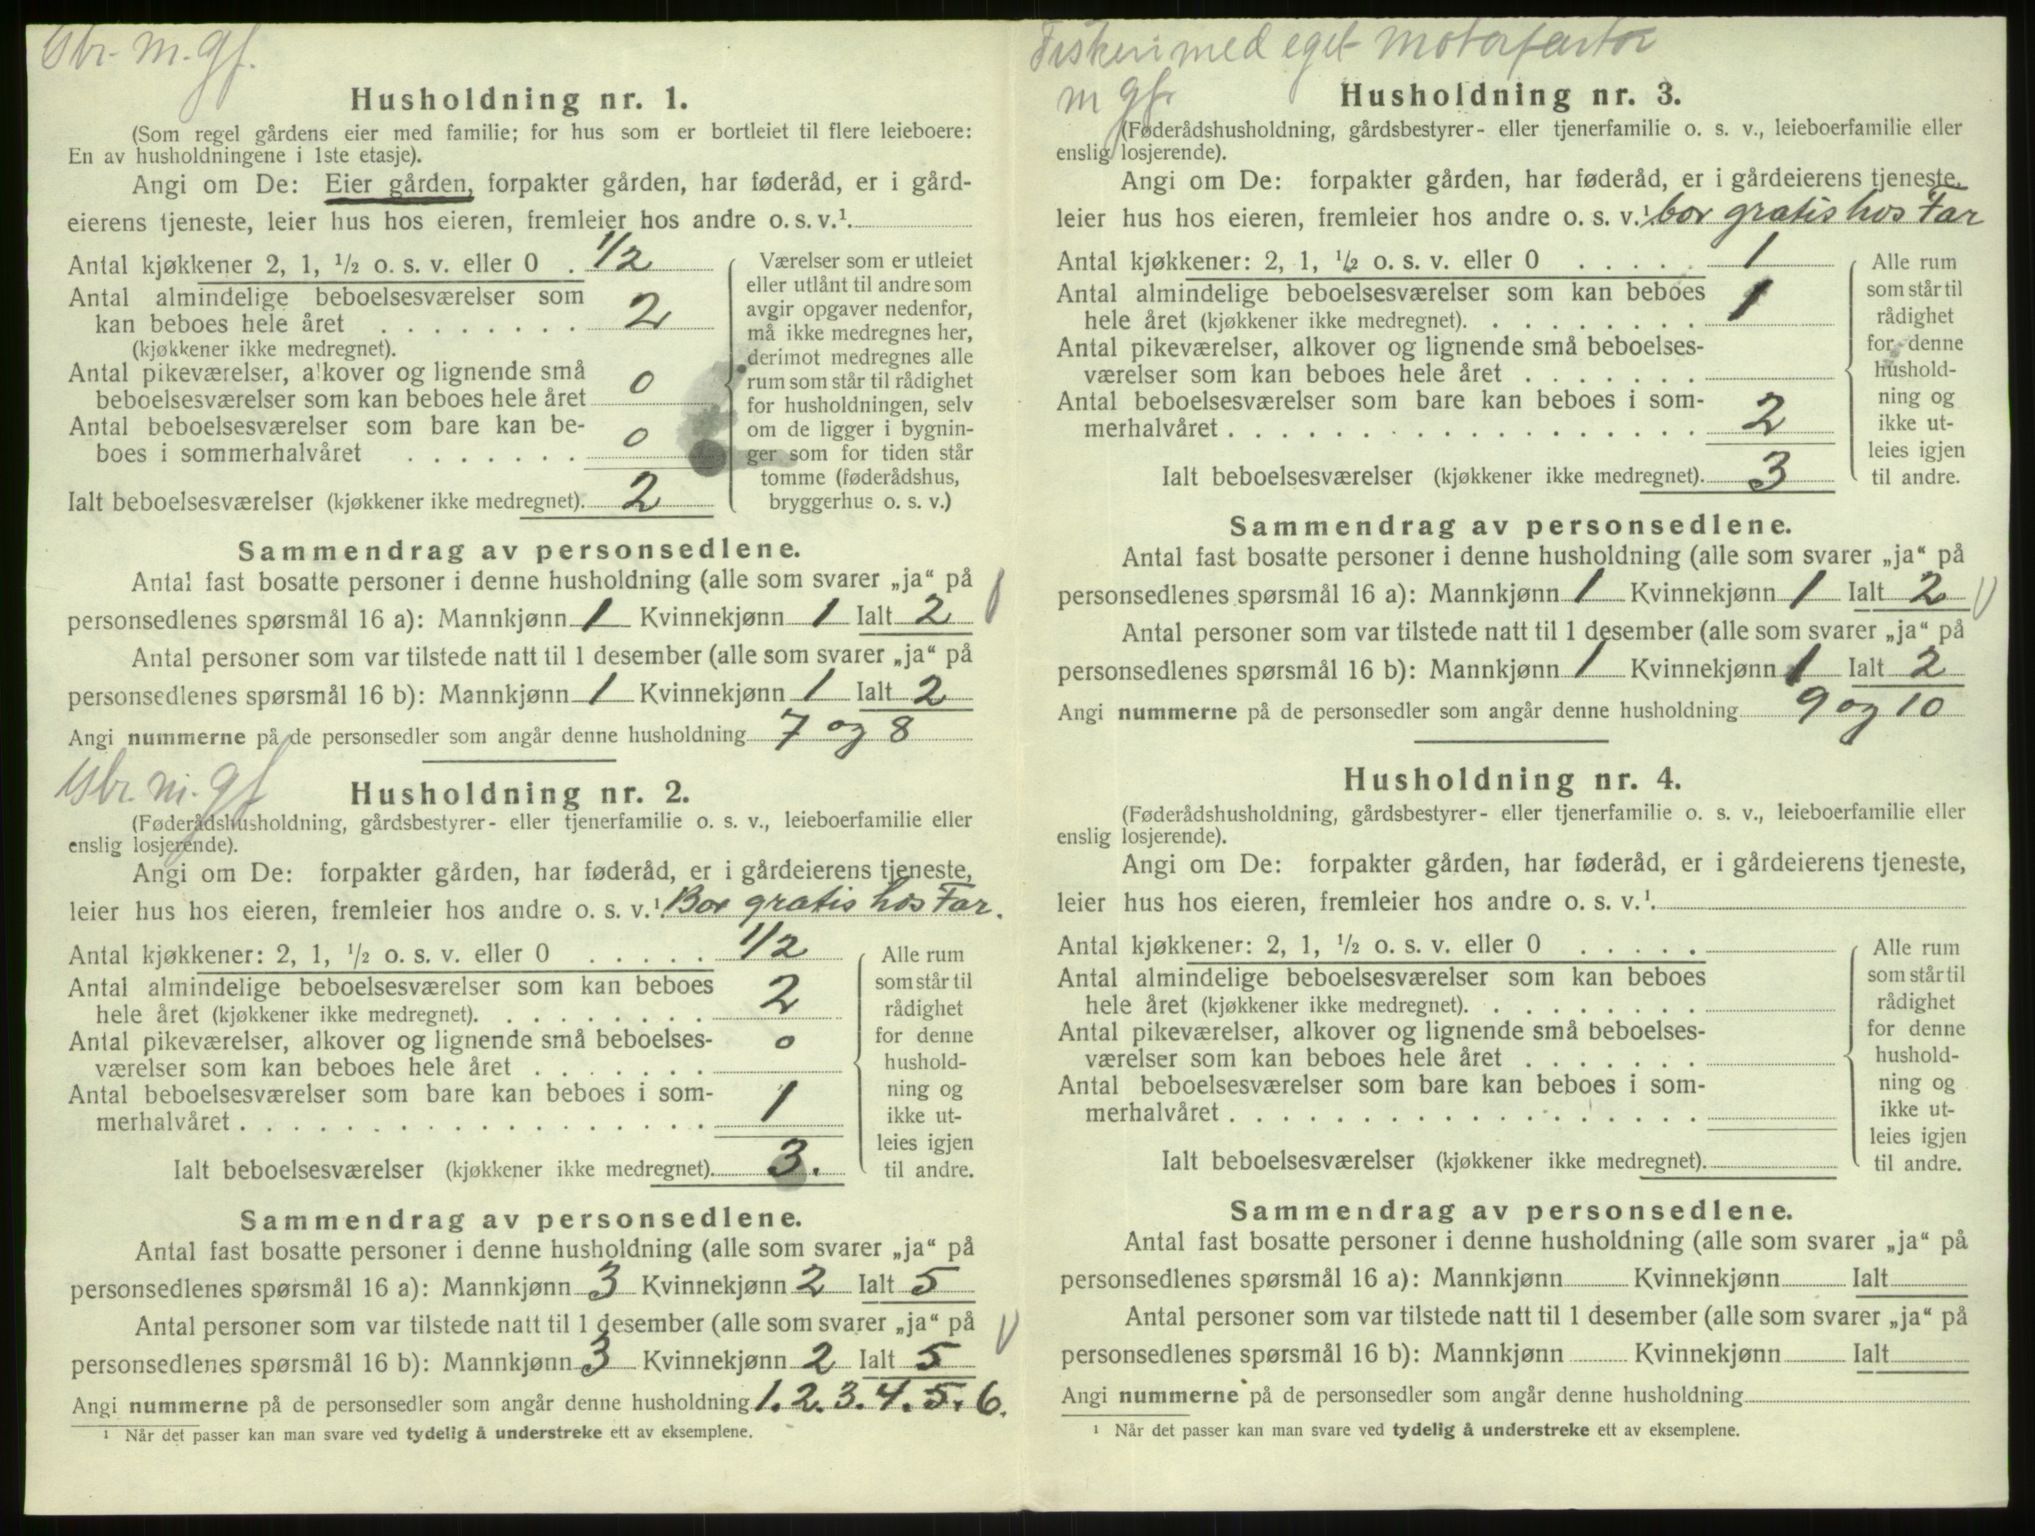 Gbr. m. gf.
Husholdning nr. 1.
(Som regel gårdens eier med familie; for hus som er bortleiet til flere leieboere:
En av husholdningene i 1ste etasje).
Angi om De: Eier gården, forpakter gården, har føderåd, er i gård-
eierens tjeneste, leier hus hos eieren, fremleier hos andre o. s. v.¹
Antal kjøkkener 2, 1, ½ o. s. v. eller 0 . 1/2
Antal almindelige beboelsesværelser som
kan beboes hele året . . . . . . . . 2
(kjøkkener ikke medregnet).
Antal pikeværelser, alkover og lignende små
beboelsesværelser som kan beboes hele året 0
Antal beboelsesværelser som bare kan be-
boes i sommerhalvåret . . . . . . . 0
Ialt beboelsesværelser (kjøkkener ikke medregnet). 2
Værelser som er utleiet
eller utlånt til andre som
avgir opgaver nedenfor,
må ikke medregnes her,
derimot medregnes alle
rum som står til rådighet
for husholdningen, selv
om de ligger i bygnin-
ger som for tiden står
tomme (føderådshus,
bryggerhus o. s. v.)
Sammendrag av personsedlene.
Antal fast bosatte personer i denne husholdning (alle som svarer „ja“ på
personsedlenes spørsmål 16 a): Mannkjønn 1 Kvinnekjønn 1 Ialt 2
Antal personer som var tilstede natt til 1 desember (alle som svarer „ja“ på
personsedlenes spørsmål 16 b): Mannkjønn 1 Kvinnekjønn 1 Ialt 2
Angi nummerne på de personsedler som angår denne husholdning 7 og 8
Gbr. m. gf
Husholdning nr. 2.
(Føderådshusholdning, gårdsbestyrer- eller tjenerfamilie o. s. v., leieboerfamilie eller
enslig losjerende).
Angi om De: forpakter gården, har føderåd, er i gårdeierens tjeneste,
leier hus hos eieren, fremleier hos andre o. s. v.¹ Bor gratis hos Far.
Antal kjøkkener: 2, 1, ½ o. s. v. eller 0 . . . . . 1/2
Antal almindelige beboelsesværelser som kan beboes
hele året (kjøkkener ikke medregnet). . . . . . . . . 2
Antal pikeværelser, alkover og lignende små beboelses-
værelser som kan beboes hele året . . . . . . . 0
Antal beboelsesværelser som bare kan beboes i som-
merhalvåret . . . . . . . . . . . . . . . . . . 1
Ialt beboelsesværelser (kjøkkener ikke medregnet). 3.
Alle rum
som står til
rådighet
for denne
hushold-
ning og
ikke ut-
leies igjen
til andre.
Sammendrag av personsedlene.
Antal fast bosatte personer i denne husholdning (alle som svarer „ja“ på
personsedlenes spørsmål 16 a): Mannkjønn 3 Kvinnekjønn 2 Ialt 5
Antal personer som var tilstede natt til 1 desember (alle som svarer „ja“ på
personsedlenes spørsmål 16 b): Mannkjønn 3 Kvinnekjønn 2 Ialt 5
Angi nummerne på de personsedler som angår denne husholdning 1. 2. 3. 4. 5. 6.
¹ Når det passer kan man svare ved tydelig å understreke ett av eksemplene.
Fiskeri med eget motorfartøi
m gf
Husholdning nr. 3.
(Føderådshusholdning, gårdsbestyrer- eller tjenerfamilie o. s. v., leieboerfamilie eller
enslig losjerende).
Angi om De: forpakter gården, har føderåd, er i gårdeierens tjeneste,
leier hus hos eieren, fremleier hos andre o. s. v.¹ bor gratis hos Far
Antal kjøkkener: 2, 1, ½ o. s. v. eller 0 . . . . . 1
Antal almindelige beboelsesværelser som kan beboes
hele året (kjøkkener ikke medregnet). . . . . . . . . 1
Antal pikeværelser, alkover og lignende små beboelses-
værelser som kan beboes hele året . . . . . . .
Antal beboelsesværelser som bare kan beboes i som-
merhalvåret . . . . . . . . . . . . . . . . . . 2
Ialt beboelsesværelser (kjøkkener ikke medregnet). 3
Alle rum
som står til
rådighet
for denne
hushold-
ning og
ikke ut-
leies igjen
til andre.
Sammendrag av personsedlene.
Antal fast bosatte personer i denne husholdning (alle som svarer „ja“ på
personsedlenes spørsmål 16 a): Mannkjønn 1 Kvinnekjønn 1 Ialt 2
Antal personer som var tilstede natt til 1 desember (alle som svarer „ja“ på
personsedlenes spørsmål 16 b): Mannkjønn 1 Kvinnekjønn 1 Ialt 2
Angi nummerne på de personsedler som angår denne husholdning 9 og 10
Husholdning nr. 4.
(Føderådshusholdning, gårdsbestyrer- eller tjenerfamilie o. s. v., leieboerfamilie eller
enslig losjerende).
Angi om De: forpakter gården, har føderåd, er i gårdeierens tjeneste,
leier hus hos eieren, fremleier hos andre o. s. v.¹
Antal kjøkkener: 2, 1, ½ o. s. v. eller 0 . . . . .
Antal almindelige beboelsesværelser som kan beboes
hele året (kjøkkener ikke medregnet). . . . . . . . .
Antal pikeværelser, alkover og lignende små beboelses-
værelser som kan beboes hele året . . . . . . .
Antal beboelsesværelser som bare kan beboes i som-
merhalvåret . . . . . . . . . . . . . . . . . .
Ialt beboelsesværelser (kjøkkener ikke medregnet).
Alle rum
som står til
rådighet
for denne
hushold-
ning og
ikke ut-
leies igjen
til andre.
Sammendrag av personsedlene.
Antal fast bosatte personer i denne husholdning (alle som svarer „ja“ på
personsedlenes spørsmål 16 a): Mannkjønn Kvinnekjønn Ialt
Antal personer som var tilstede natt til 1 desember (alle som svarer „ja“ på
personsedlenes spørsmål 16 b): Mannkjønn Kvinnekjønn Ialt
Angi nummerne på de personsedler som angår denne husholdning
¹ Når det passer kan man svare ved tydelig å understreke ett av eksemplene.